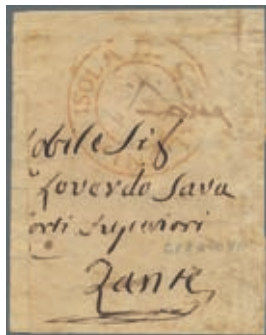 ISOLA DI
obile Sig
Loverdo Sava
orti Superiori
Zante